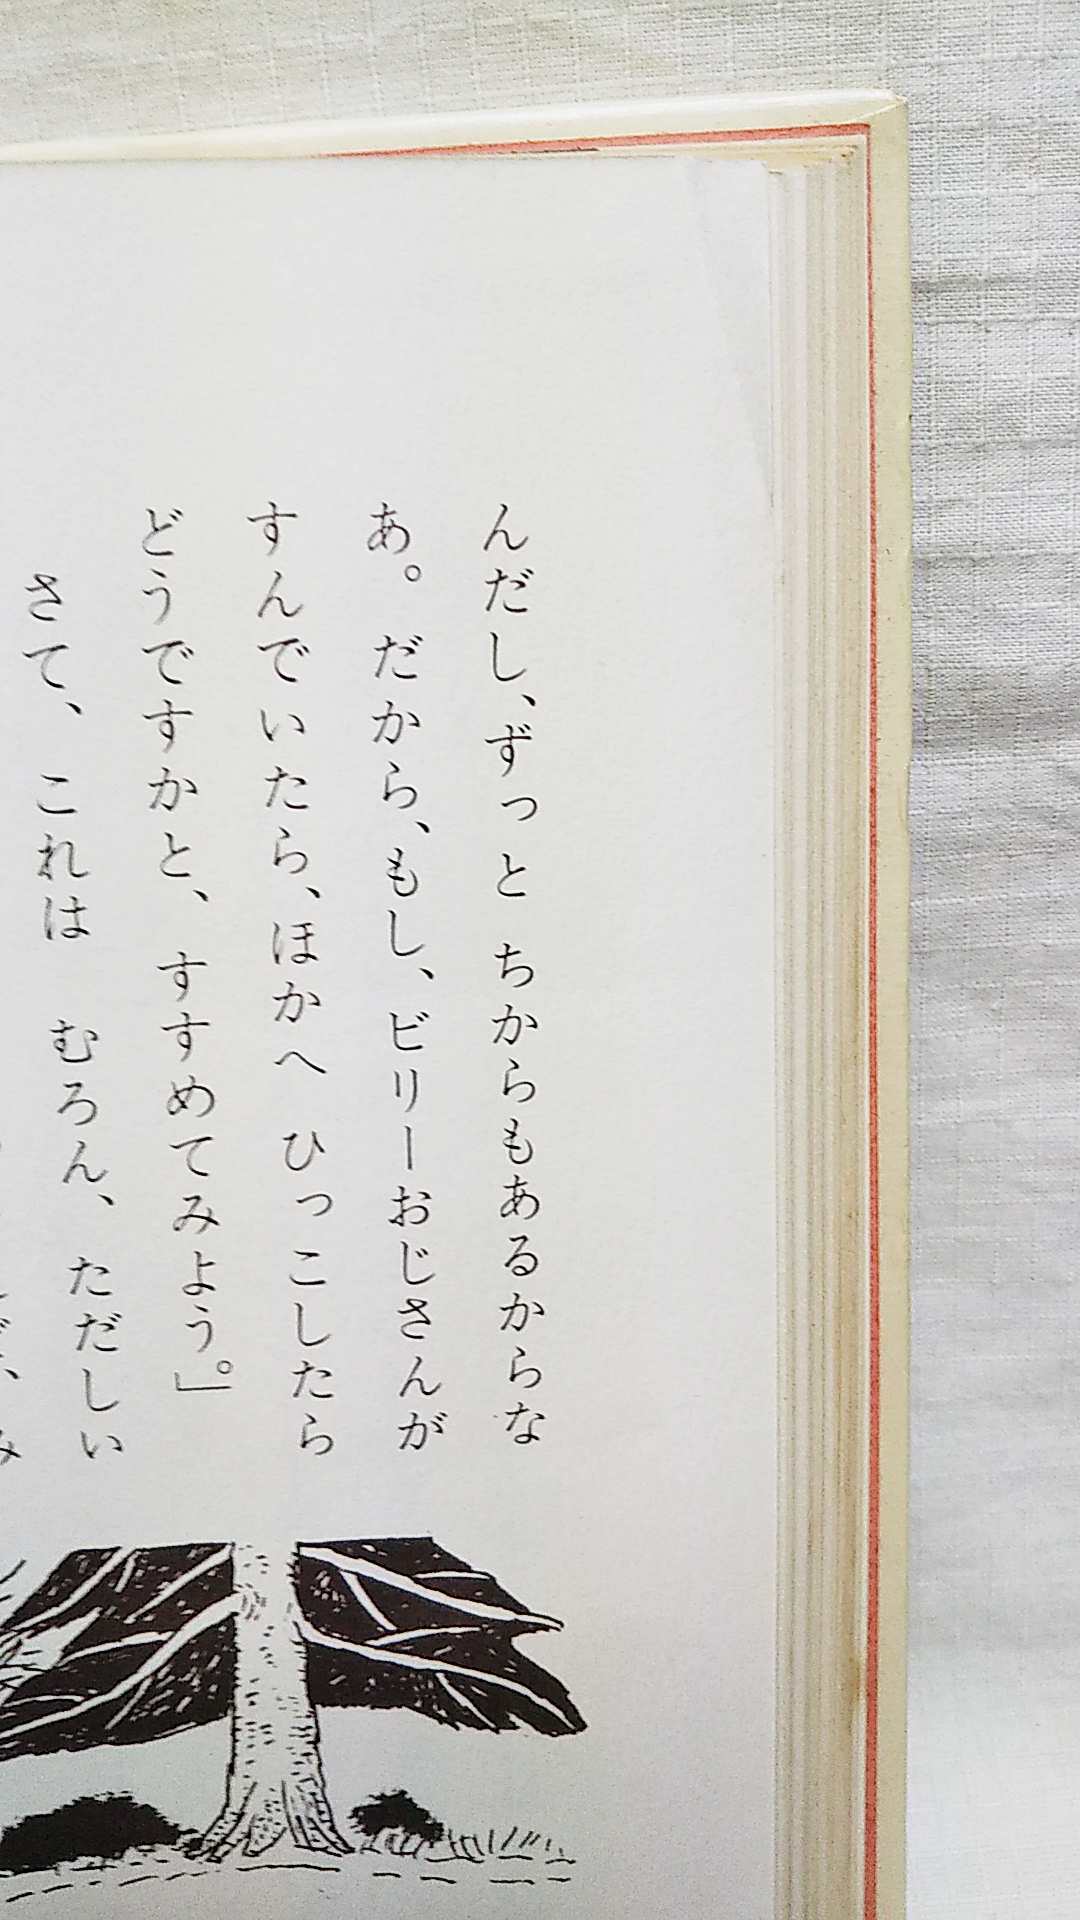 んだし、ずっと ちからもあるからな
あ。だから、もし、ビリーおじさんが
すんでいたら、ほかへ ひっこしたら
どうですかと、すすめてみよう。」
さて、これは むろん、ただしい